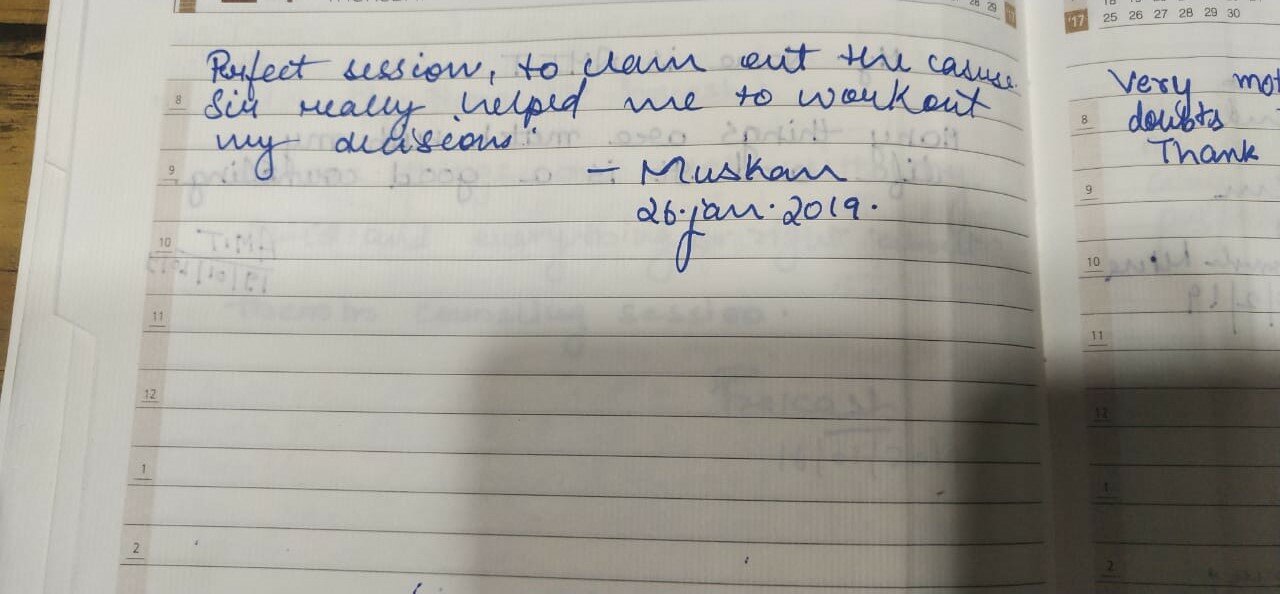 Perfect session, to clear out the casuse.
Sir really helped me to workout
my decisions.
- Muskan
26.jan.2019.
8
9
10
11
12
1
2
28 29
'17
25 26 27 28 29 30
Very mot
doubts
Thank
8
9
10
11
12
1
2